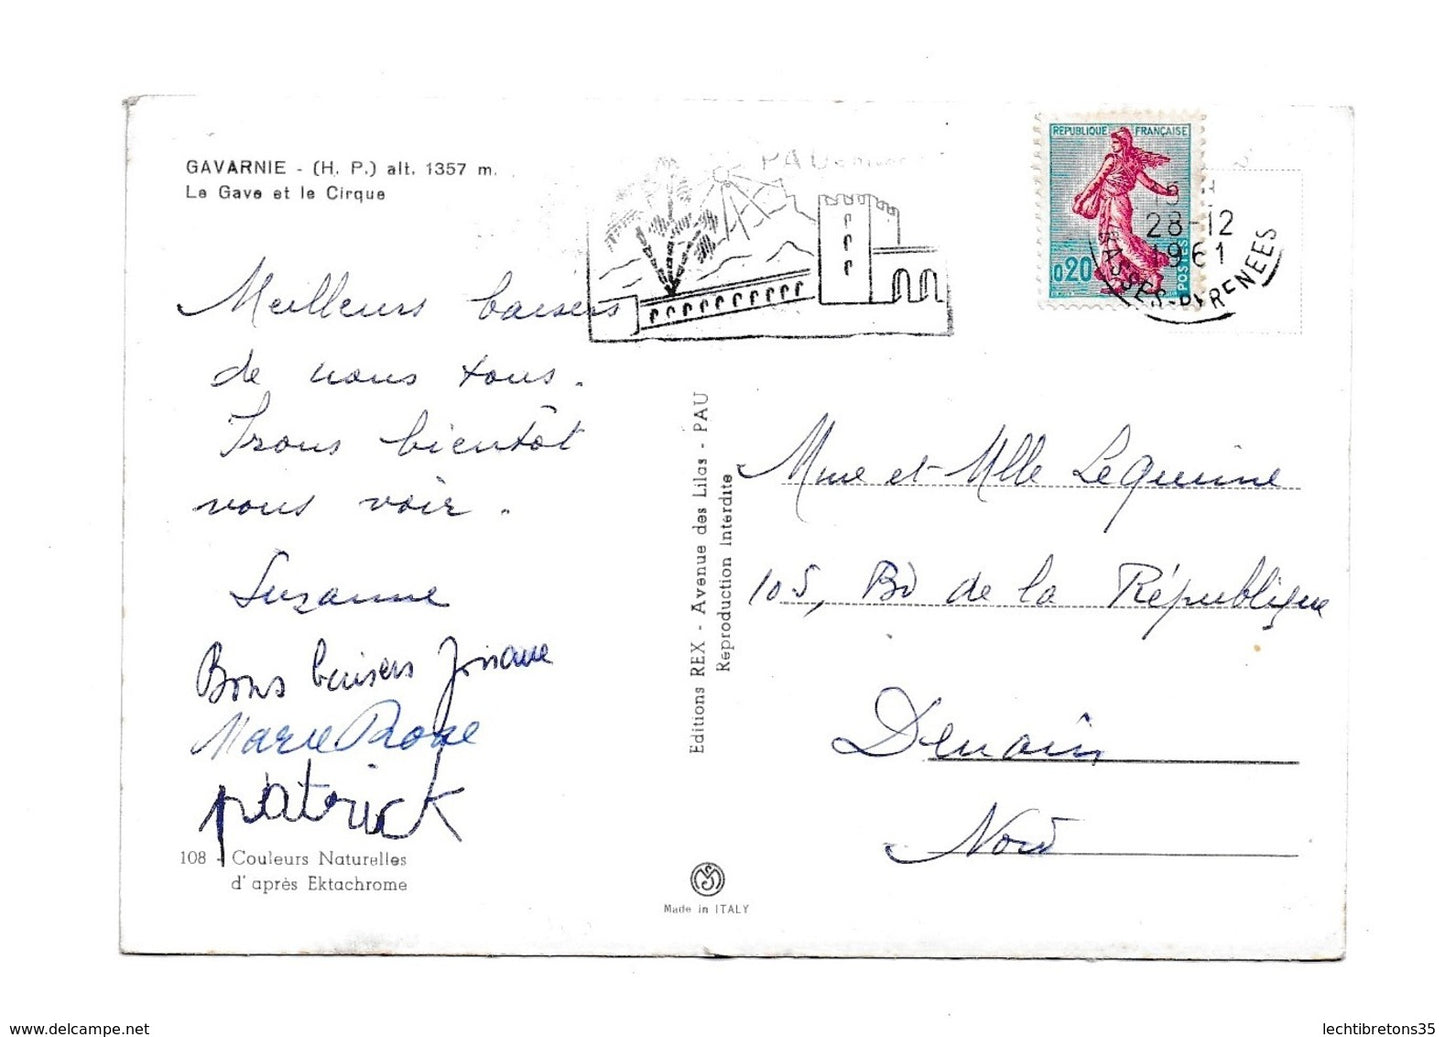 GAVARNIE - (H. P.) alt. 1357 m.
Le Gave et le Cirque
Meilleurs baisers
de nous tous.
Irons bientôt
vous voir.
Suzanne
Bons baisers Josiane
Marie Rose
patrick
108 - Couleurs Naturelles
d'après Ektachrome
Editions REX - Avenue des Lilas - PAU
Reproduction Interdite
Made in ITALY
PAU
REPUBLIQUE FRANÇAISE
0,20
POSTES
28-12
1961
BASSES-PYRENEES
Mme et Mlle Lequinne
105, Bd de la République
Denain
Nord
www.delcampe.net
lechtibretons35